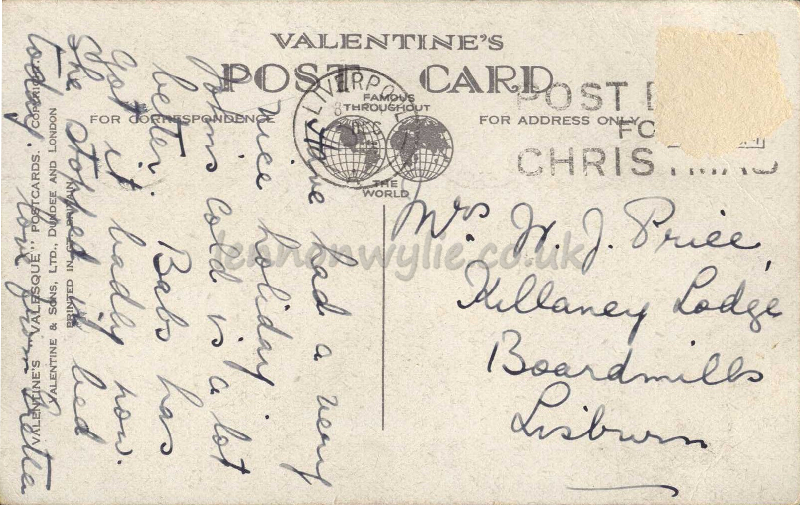 VALENTINE'S
POST CARD
FOR CORRESPONDENCE
FOR ADDRESS ONLY
FAMOUS
THROUGHOUT
THE
WORLD
LIVERPOOL
DEC
POST
FO
CHRISTMAS
Have had a very
nice holiday.
John's cold is a lot
better. Babs has
got it badly now.
She stopped in bed
today. Love from
Mrs. W. J. Price,
Killaney Lodge
Boardmills
Lisburn
VALENTINE'S "VALESQUE" POSTCARDS. COPYRIGHT.
VALENTINE & SONS, LTD., DUNDEE AND LONDON
PRINTED IN GT. BRITAIN
lennonwylie.co.uk